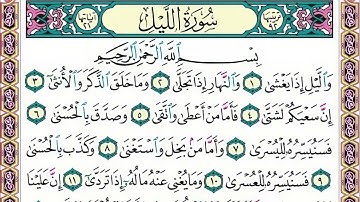 سُورَةُ اللَّيْلِ
بِسْمِ اللَّهِ الرَّحْمَٰنِ الرَّحِيمِ
وَاللَّيْلِ إِذَا يَغْشَىٰ ١ وَالنَّهَارِ إِذَا تَجَلَّىٰ ٢ وَمَا خَلَقَ الذَّكَرَ وَالْأُنثَىٰ ٣
إِنَّ سَعْيَكُمْ لَشَتَّىٰ ٤ فَأَمَّا مَنْ أَعْطَىٰ وَاتَّقَىٰ ٥ وَصَدَّقَ بِالْحُسْنَىٰ ٦
فَسَنُيَسِّرُهُ لِلْيُسْرَىٰ ٧ وَأَمَّا مَنْ بَخِلَ وَاسْتَغْنَىٰ ٨ وَكَذَّبَ بِالْحُسْنَىٰ
٩ فَسَنُيَسِّرُهُ لِلْعُسْرَىٰ ١٠ وَمَا يُغْنِي عَنْهُ مَالُهُ إِذَا تَرَدَّىٰ ١١ إِنَّ عَلَيْنَا